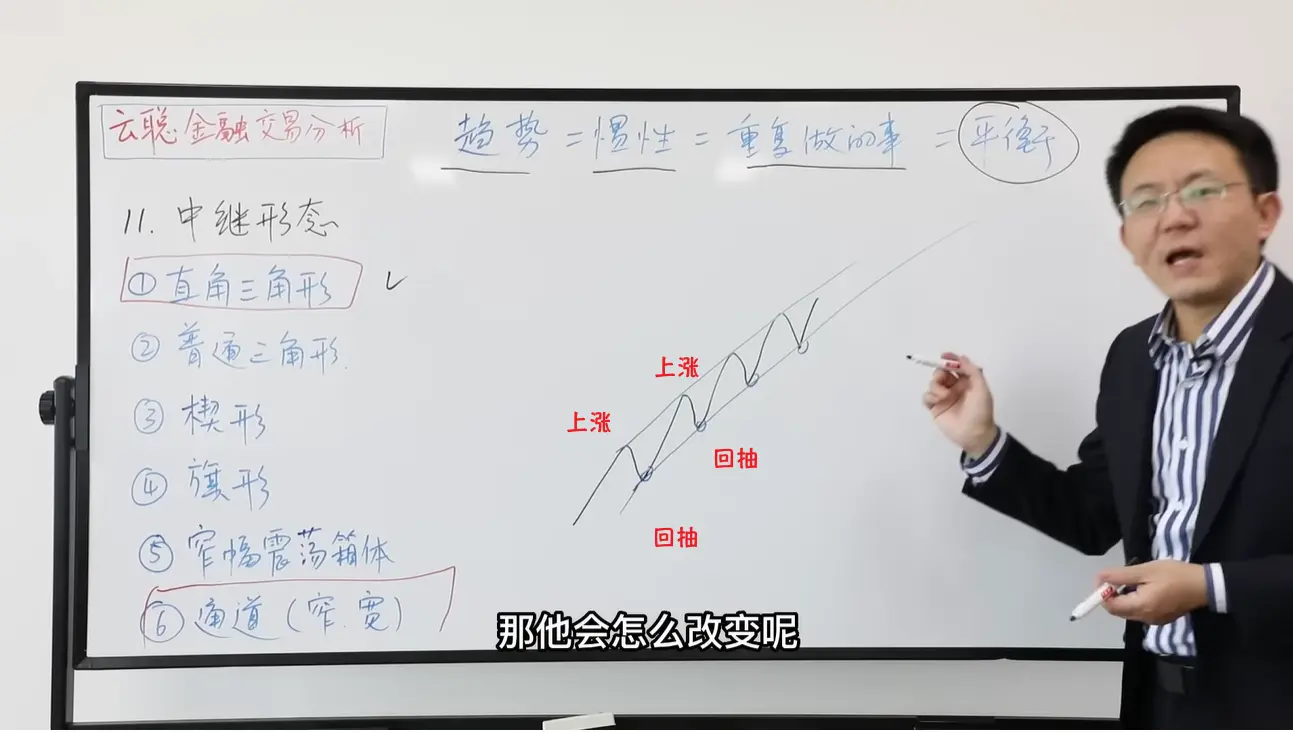 云聪金融交易分析
趋势 = 惯性 = 重复做的事 = 平衡
11. 中继形态
① 直角三角形 ✓
② 普通三角形.
③ 楔形
④ 旗形
⑤ 窄幅震荡箱体
⑥ 通道(窄.宽)
上涨
上涨
回抽
回抽
那他会怎么改变呢